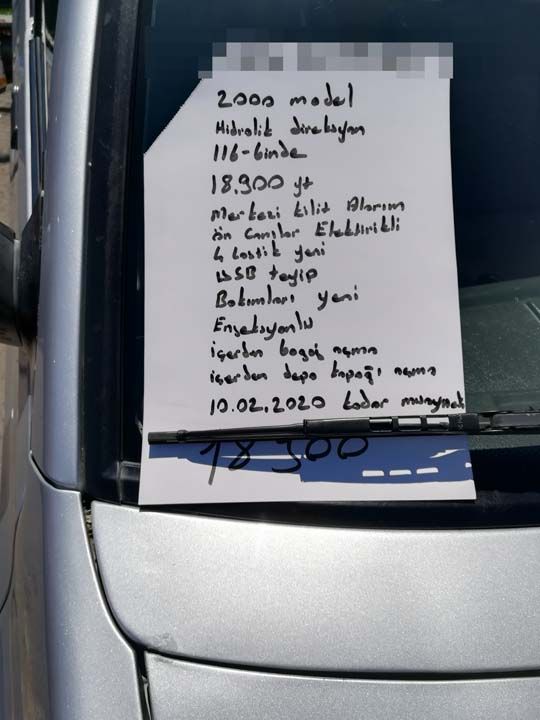 2000 model
Hidrolik direksyon
116-binde
18.900 yt
Merkezi kilit Alarım
ön Camlar Elektirikli
4 Lastik yeni
USB teyip
Bakımları yeni
Enjeksiyonlu
içerden bagaj açma
içerden depo kapağı açma
10.02.2020 kadar muayneli
18900